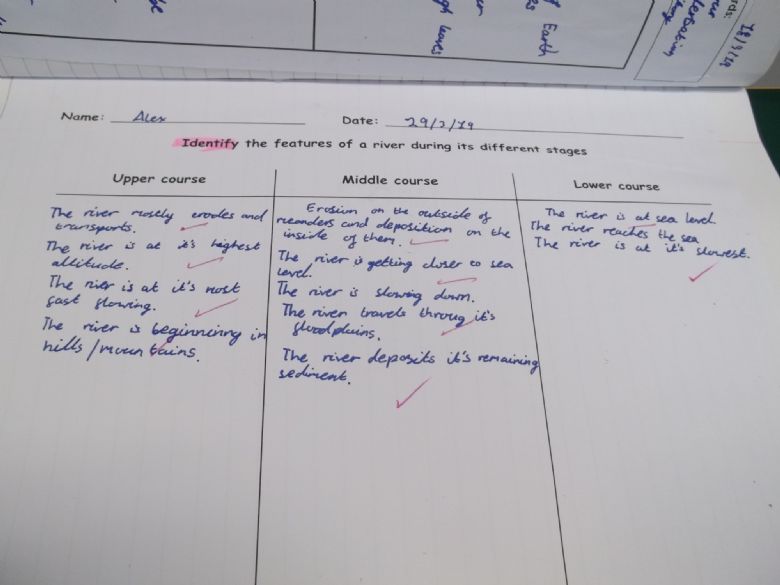 of Earth
gh loves
18/3/19
Name: Alex
Date: 29/3/19
Identify the features of a river during its different stages
Upper course
The river mostly erodes and
transports.
The river is at it's highest
altitude.
The river is at it's most
fast flowing.
The river is beginnering in
hills/mountains.
Middle course
Erosion on the outside of
meanders and deposition on the
inside of them.
The river is getting closer to sea
level.
The river is slowing down.
The river travels throug it's
floodplains.
The river deposits it's remaining
sediment.
Lower course
The river is at sea level.
The river reaches the sea
The river is at it's slowest.